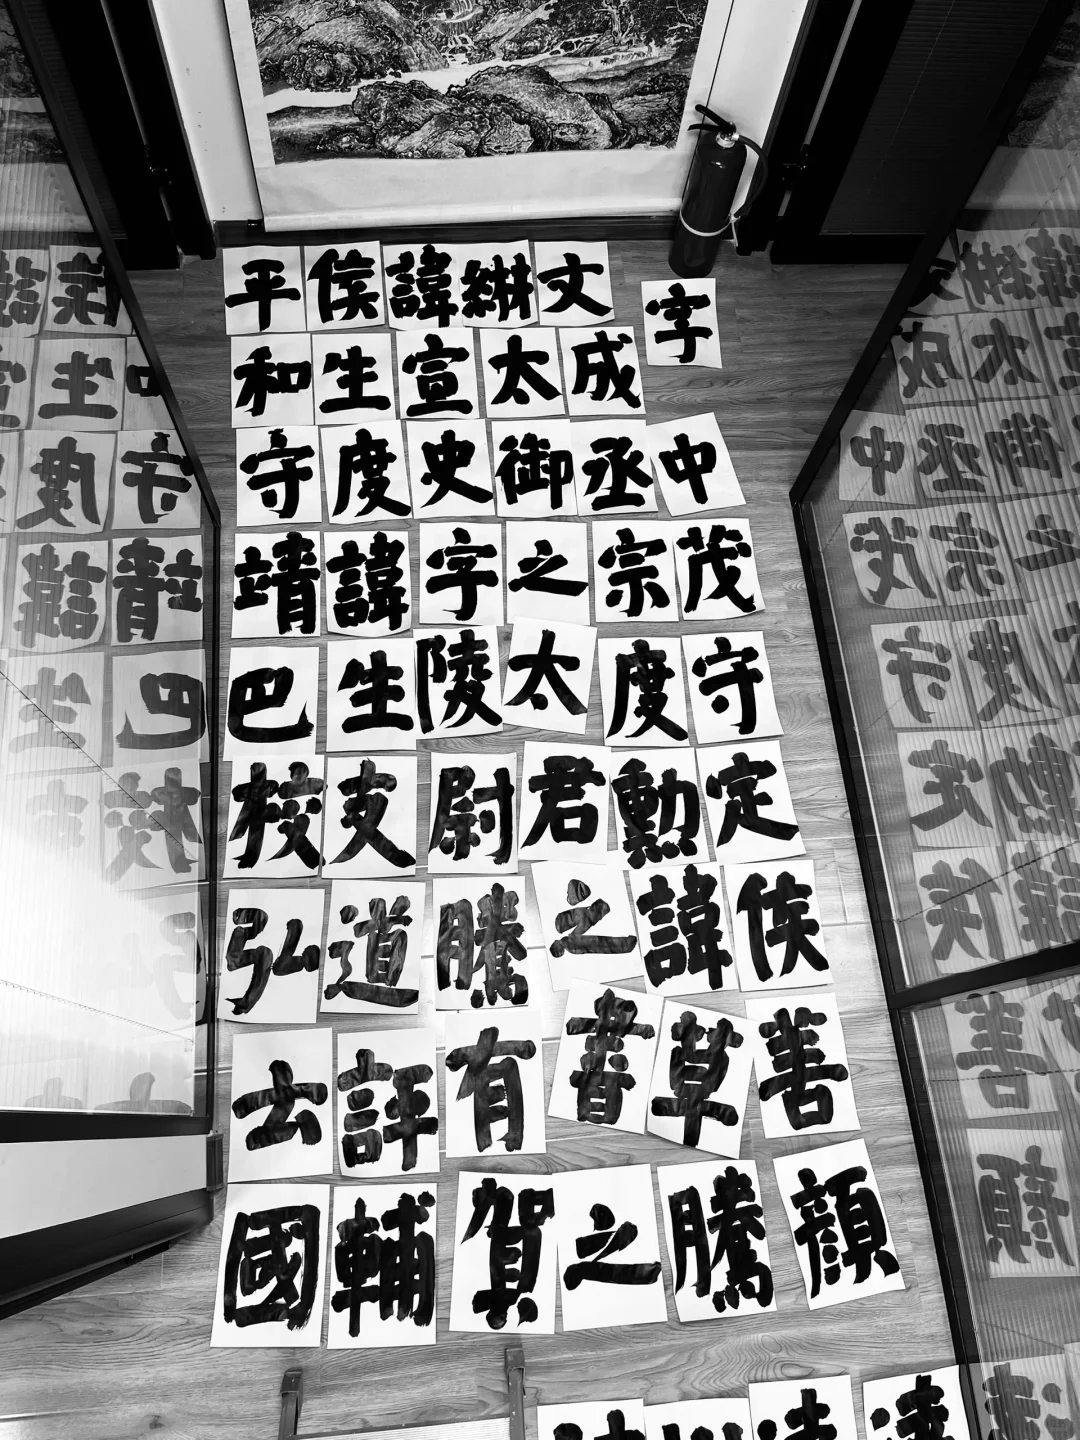 字文綝諱侯平
成太宣生和
中丞御史度守
茂宗之字諱靖
守度太陵生巴
定勳君尉支校
侯諱之騰道弘
善草書有評云
顏騰之賀輔國